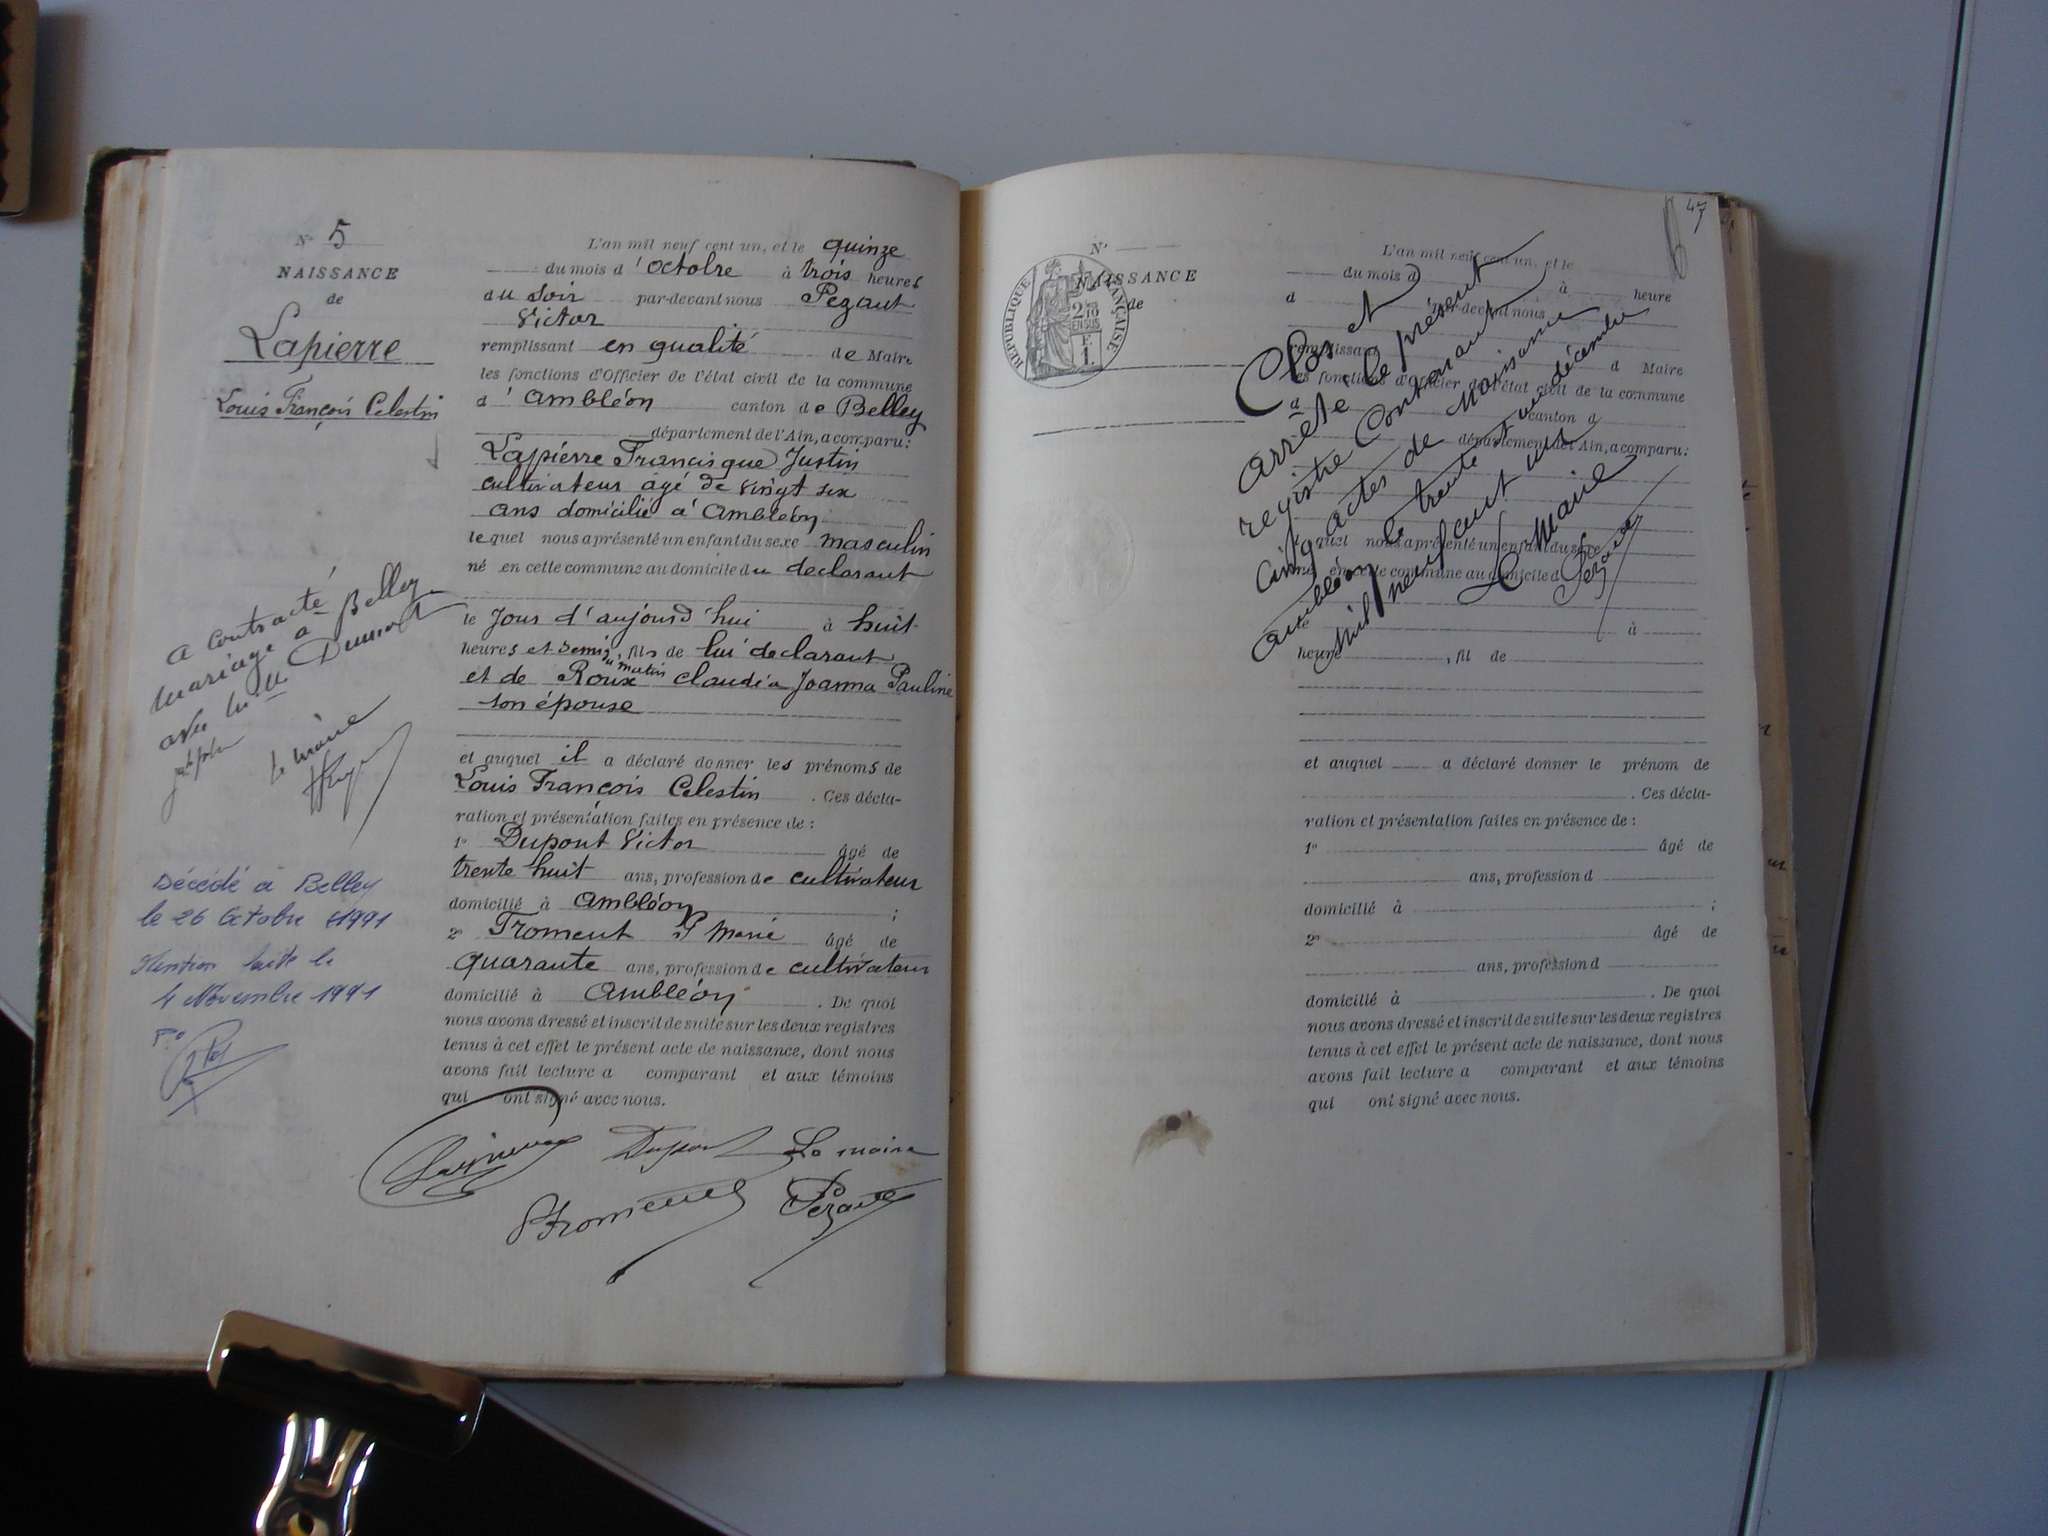 N° 5
NAISSANCE
de
Lapierre
Louis François Celestin
A contracté
mariage à Belley
avec
le maire
Décédé à Belley
le 26 Octobre 1991
Mention faite le
4 Novembre 1991
L'an mil neuf cent un, et le quinze
du mois d'octobre à trois heures
du soir par-devant nous Pezant
Victor
remplissant en qualité de Maire
les fonctions d'Officier de l'état civil de la commune
d'Ambléon canton de Belley
département de l'Ain, a comparu:
Lapierre Francisque Justin
cultivateur agé de vingt six
ans domicilié à Ambléon
lequel nous a présenté un enfant du sexe masculin
né en cette commune au domicile du declarant
le jour d'aujourd'hui à huit
heures et demie du matin, fils de lui declarant
et de Roux Claudia Joanna Pauline
son épouse
et auquel il a déclaré donner les prénoms de
Louis François Celestin . Ces décla-
ration et présentation faites en présence de :
1° Dupont Victor âgé de
trente huit ans, profession de cultivateur
domicilié à Ambléon ;
2° Froment Marie âgé de
quarante ans, profession de cultivateur
domicilié à Ambléon . De quoi
nous avons dressé et inscrit de suite sur les deux registres
tenus à cet effet le présent acte de naissance, dont nous
avons fait lecture a comparant et aux témoins
qui ont signé avec nous.
Dupont Le maire
Froment Pezant
47
N°
NAISSANCE
de
RÉPUBLIQUE FRANÇAISE
2/10
EN SUS
F.
1.
L'an mil neuf cent un, et le
du mois d à heure
d par-devant nous
remplissant d Maire
les fonctions d'Officier de l'état civil de la commune
d canton d
département de l'Ain, a comparu:
lequel nous a présenté un enfant du sexe
né en cette commune au domicile d
le à
heure , fil de
Clos et
arrêté le présent
registre Contenant
cinq actes de Naissance
Ambléon le trente et un décembre
Mil neuf cent un
Le Maire
Pezant
et auquel a déclaré donner le prénom de
. Ces décla-
ration et présentation faites en présence de :
1° âgé de
ans, profession d
domicilié à ;
2° âgé de
ans, profession d
domicilié à . De quoi
nous avons dressé et inscrit de suite sur les deux registres
tenus à cet effet le présent acte de naissance, dont nous
avons fait lecture a comparant et aux témoins
qui ont signé avec nous.